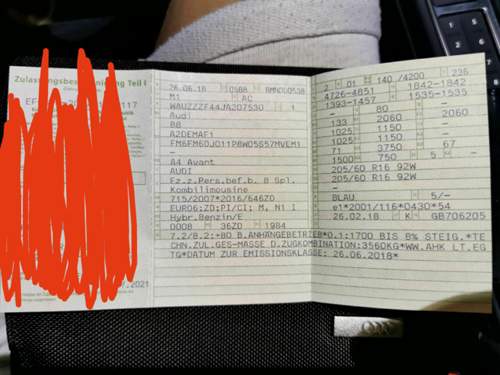 Zulassungsbescheinigung Teil I
117
2021
26.06.18 0588
M1 AC
WAUZZZF44JA207530 1
Audi
B8
A2DEMAF1
–
A4 Avant
AUDI
Fz.z.Pers.bef.b. 8 Spl.
Kombilimousine
715/2007*2016/646ZD
EURO6;ZD;PI/CI; M, N1 I
Hybr.Benzin/E
0008 36ZD 1984
2 01 140 /4200 236
4726-4851 1842-1842
1393-1457 1535-1535
– 80 –
133 2060 2060
1025 1150 –
1025 1150 –
71 3750 67
1500 750 5 –
205/60 R16 92W
205/60 R16 92W
–
BLAU 5/–
e1*2001/116*0430*54
26.02.18 K GB706205
7.2/8.2:+80 B.ANHÄNGEBETRIEB*O.1:1700 BIS 8% STEIG.*TE
CHN.ZUL.GES-MASSE D.ZUGKOMBINATION:3560KG*WW.AHK LT.EG
TG*DATUM ZUR EMISSIONSKLASSE: 26.06.2018*